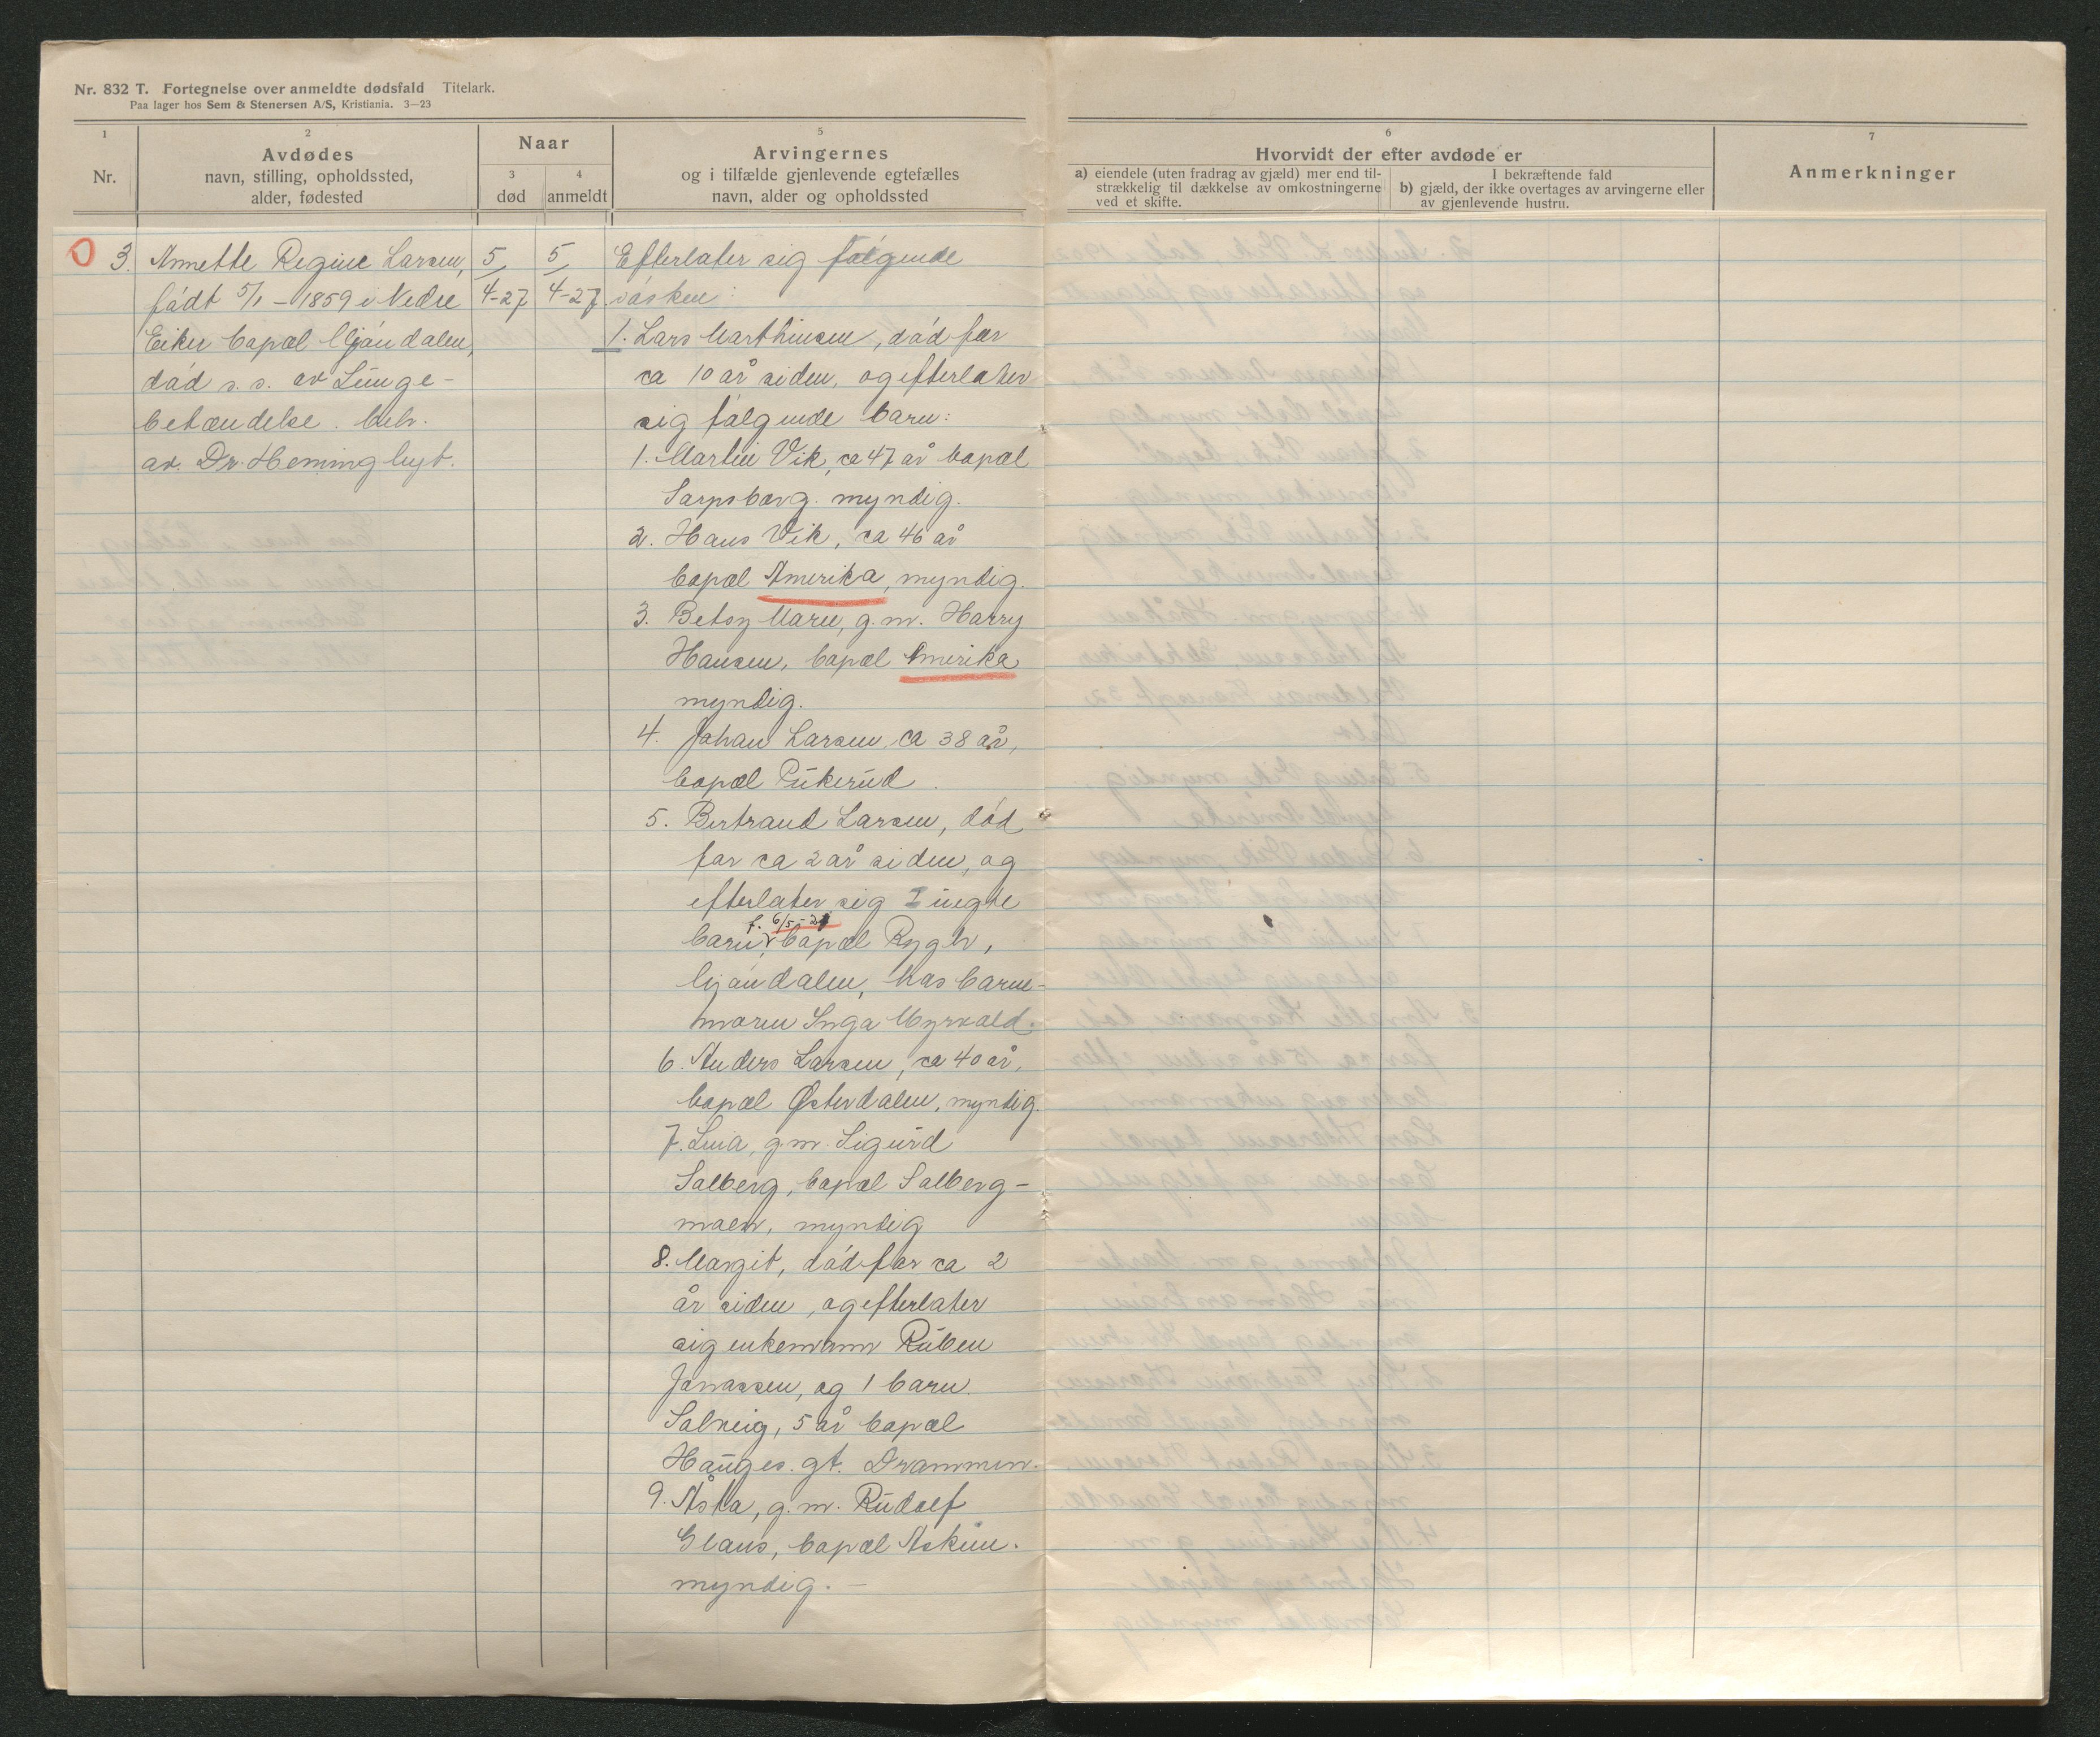 Nr. 832 T. Fortegnelse over anmeldte dødsfald Titelark.
Paa lager hos Sem & Stenersen A/S, Kristiania. 3—23
1
Nr.
2
Avdødes
navn, stilling, opholdssted,
alder, fødested
Naar
3
død
4
anmeldt
5
Arvingernes
og i tilfælde gjenlevende egtefælles
navn, alder og opholdssted
6
Hvorvidt der efter avdøde er
a) eiendele (uten fradrag av gjæld) mer end til-
strækkelig til dækkelse av omkostningerne
ved et skifte.
I bekræftende fald
b) gjæld, der ikke overtages av arvingerne eller
av gjenlevende hustru.
7
Anmerkninger
3. Annette Regine Larsen,
født 5/1 - 1859 i Nedre
Eiker bopæl Mjøndalen,
død s. s. av Lunge-
betændelse. beh.
av. Dr. Heming hyt.
5/4-27
5/4-27
Efterlater sig følgende
søsken:
1. Lars Marthinsen, død for
ca 10 år siden, og efterlater
sig følgende barn:
1. Martin Vik, ca 47 år bopæl
Sarpsborg. myndig.
2. Hans Vik, ca 46 år
bopæl Amerika, myndig.
3. Betsy Marie, g.m. Harry
Hansen, bopæl Amerika
myndig.
4. Johan Larsen, ca 38 år,
bopæl Pukerud.
5. Bertrand Larsen, død
for ca 2 år siden, og
efterlater sig 1 uegte
f. 6/5-21
barn, bopæl Rygh,
Mjøndalen, hos barne-
moren Inga Myrvold.
6. Anders Larsen, ca 40 år,
bopæl Østerdalen, myndig.
7. Lina, g.m. Sigurd
Solberg, bopæl Solberg-
moen, myndig
8. Margit, død for ca 2
år siden, og efterlater
sig enkemann Ruben
Jonassen, og 1 barn.
Solveig, 5 år bopæl
Hauges. gt. Drammen.
9. Åsta, g.m. Rudolf
Glaus, bopæl Askim.
myndig. —